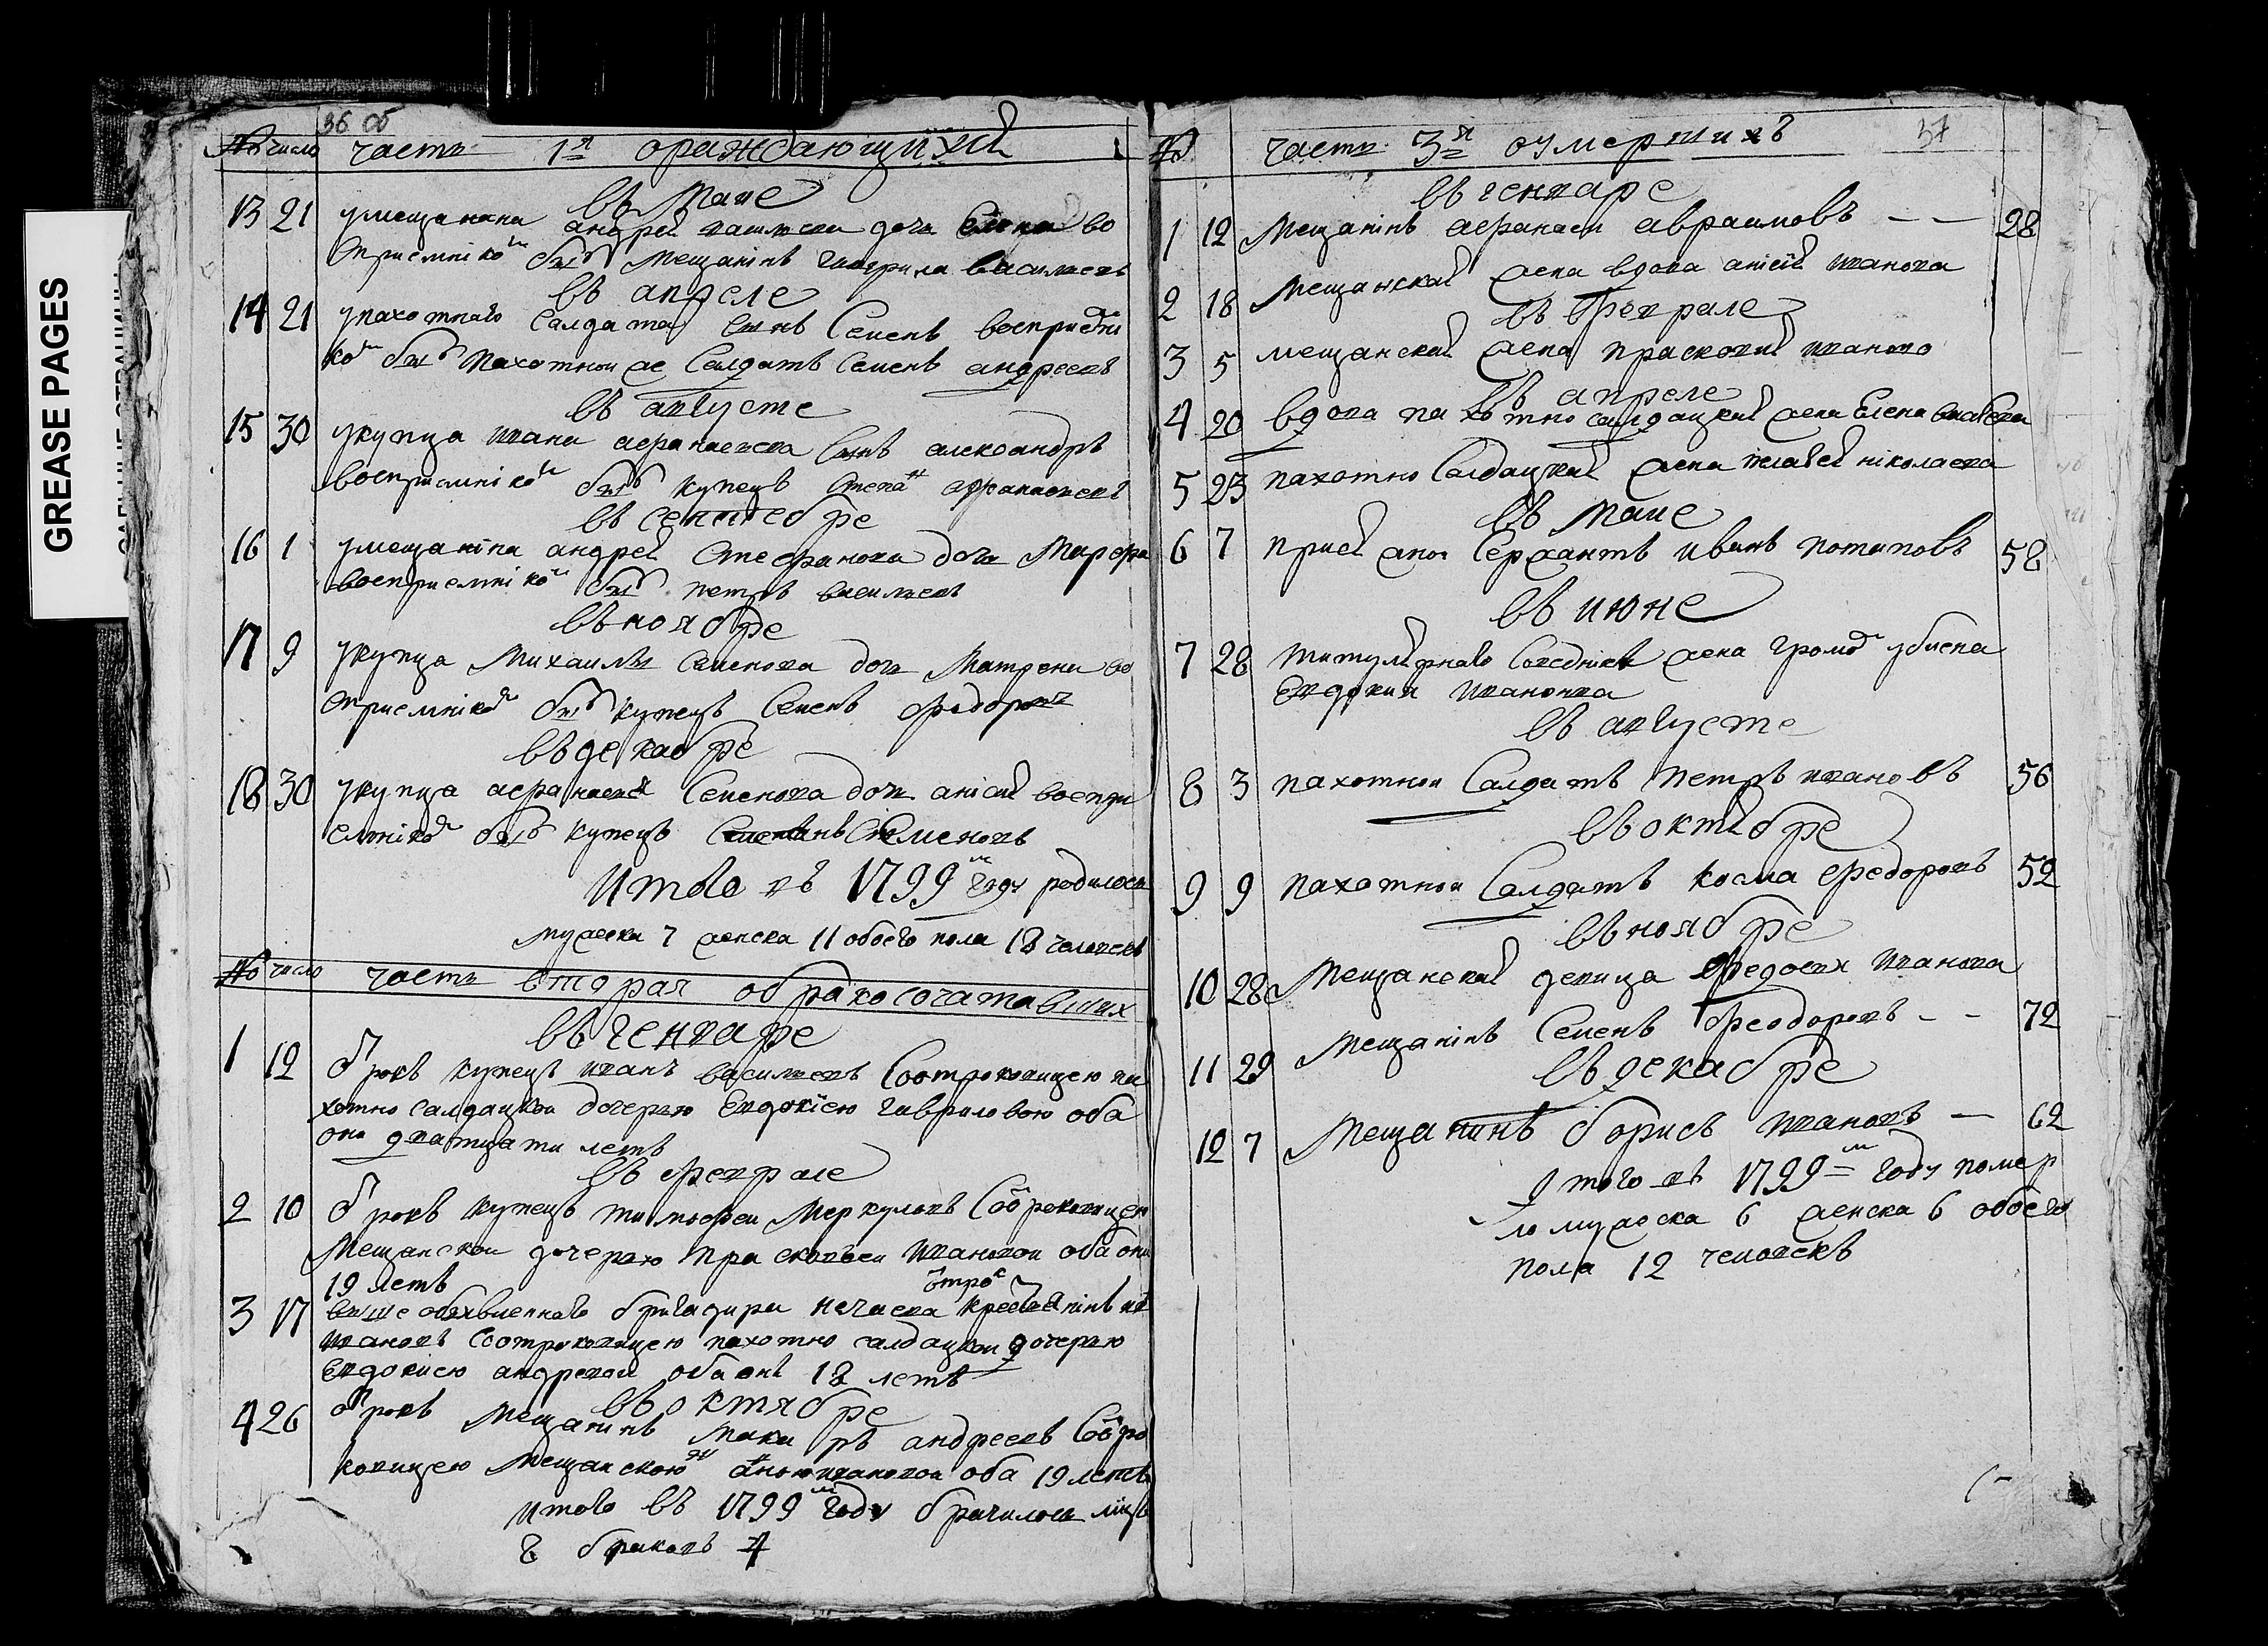 GREASE PAGES
36 об
№ число часть 1я ораждающихсй
въ Маие
13 21 умещанина андрей дочь Елена во
сприемнико был Мещанінъ гаврила васильевъ
въ апреле
14 21 упахотнаго Салдата сынъ Семенъ восприемни
ко былъ пахотнои же Салдатъ Семенъ андреевъ
въ августе
15 30 укупца ивана афанасьева сынъ александръ
восприемніко былъ купецъ Степан афанасьевъ
въ сентебре
16 1 умещаніна андрей Стефанова дочь Марфа
восприемніко былъ петръ васильевъ
въ ноябре
17 9 укупца Михаилы Семенова дочь Матрена во
сприемніко былъ купецъ Семенъ федоровъ
въ декабре
18 30 укупца афанасей Семенова дочь анісий воспри
емніко былъ купецъ Семеновъ
Итого въ 1799м году родилось
мужеска 7 женска 11 обоего пола 18 человекъ
№ число часть вторая обракосочатавших
въ генваре
1 12 отрокъ купецъ иванъ васильевъ Соотроковицею па
хотно салдацкои дочерью Евдокїею гавриловою оба
они дватцати летъ
въ феврале
2 10 отрокъ купецъ тимофеи Меркуловъ Соотроковицею
Мещанскои дочерью прасковьеи ивановои оба они
19 летъ
отрок
3 17 выше обявленнаго бригадира нечаева
ивановъ Соотроковицею пахотно салдацкои дочерью
Евдокиею андревои оба оне 18 летъ
въ октябре
4 26 отрокъ Мещанинъ Макаръ андреевъ Соотро
ковицею Мещанскою анною ивановои оба 19 летъ
итого въ 1799м году брачилось лицъ
8 браковъ 4
37
№ часть 3я оумершихъ
въ генваре
1 12 Мещанінъ афанаси аврамовъ — — 28
2 18 Мещанскай жена вдова анісий иванова
въ феврале
3 5 мещанскай жена прасковий иванова
въ апреле
4 20 вдова пахотно салдацкай жена Елена
5 23 пахотно Салдацкай жена пелагей ніколаева
въ Маие
6 7 Сержантъ иванъ потаповъ 58
въ июне
7 28 титулярнаго Советника жена громо убиена
Евдокия ивановна
въ августе
8 3 пахотнои Салдатъ петръ ивановъ 56
въ октябре
9 9 пахотнои Салдатъ косма федоровъ 52
въ ноябре
10 28 Мещанскай девица федосья иванова
11 29 Мещанінъ Семенъ феодоровъ - - 72
въ декабре
12 7 Мещанинъ борисъ ивановъ — 62
Итого въ 1799м году померло
мужеска 6 женска 6 обоего
пола 12 человекъ